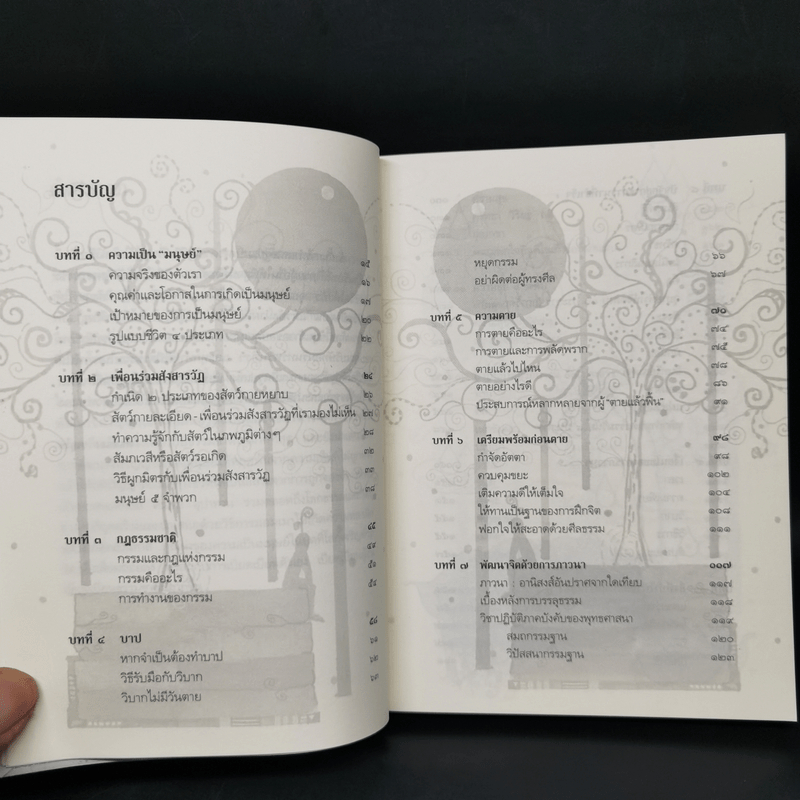 สารบัญ
บทที่ ๑ ความเป็น "มนุษย์" ๑๕
ความจริงของตัวเรา ๑๖
คุณค่าและโอกาสในการเกิดเป็นมนุษย์ ๑๗
เป้าหมายของการเป็นมนุษย์ ๒๐
รูปแบบชีวิต ๔ ประเภท ๒๒
บทที่ ๒ เพื่อนร่วมสังสารวัฏ ๒๔
กำเนิด ๒ ประเภทของสัตว์กายหยาบ ๒๖
สัตว์กายละเอียด - เพื่อนร่วมสังสารวัฏที่เรามองไม่เห็น
ทำความรู้จักกับสัตว์ในภพภูมิต่างๆ ๒๘
สัมภเวสีหรือสัตว์รอเกิด ๓๒
วิธีผูกมิตรกับเพื่อนร่วมสังสารวัฏ ๓๓
มนุษย์ ๕ จำพวก ๓๘
บทที่ ๓ กฎธรรมชาติ ๔๕
กรรมและกฎแห่งกรรม ๔๙
กรรมคืออะไร ๕๑
การทำงานของกรรม ๕๔
บทที่ ๔ บาป ๕๘
หากจำเป็นต้องทำบาป ๖๑
วิธีรับมือกับวิบาก ๖๒
วิบากไม่มีวันตาย ๖๓
หยุดกรรม ๖๖
อย่าผิดต่อผู้ทรงศีล ๖๗
บทที่ ๕ ความตาย ๗๐
การตายคืออะไร ๗๔
การตายและการพลัดพราก ๗๕
ตายแล้วไปไหน ๗๘
ตายอย่างไรดี ๘๖
ประสบการณ์หลากหลายจากผู้ "ตายแล้วฟื้น" ๙๑
บทที่ ๖ เตรียมพร้อมก่อนตาย ๙๔
กำจัดอัตตา ๙๘
ควบคุมขยะ ๑๐๒
เติมความดีให้เต็มใจ ๑๐๔
ให้ทานเป็นฐานของการฝึกจิต ๑๐๘
ฟอกใจให้สะอาดด้วยศีลธรรม ๑๑๑
บทที่ ๗ พัฒนาจิตด้วยการภาวนา ๑๑๗
ภาวนา : อานิสงส์อันปราศจากใดเทียบ ๑๑๗
เบื้องหลังการบรรลุธรรม ๑๑๘
วิชาปฏิบัติภาคบังคับของพุทธศาสนา ๑๑๙
สมถกรรมฐาน ๑๒๐
วิปัสสนากรรมฐาน ๑๒๓